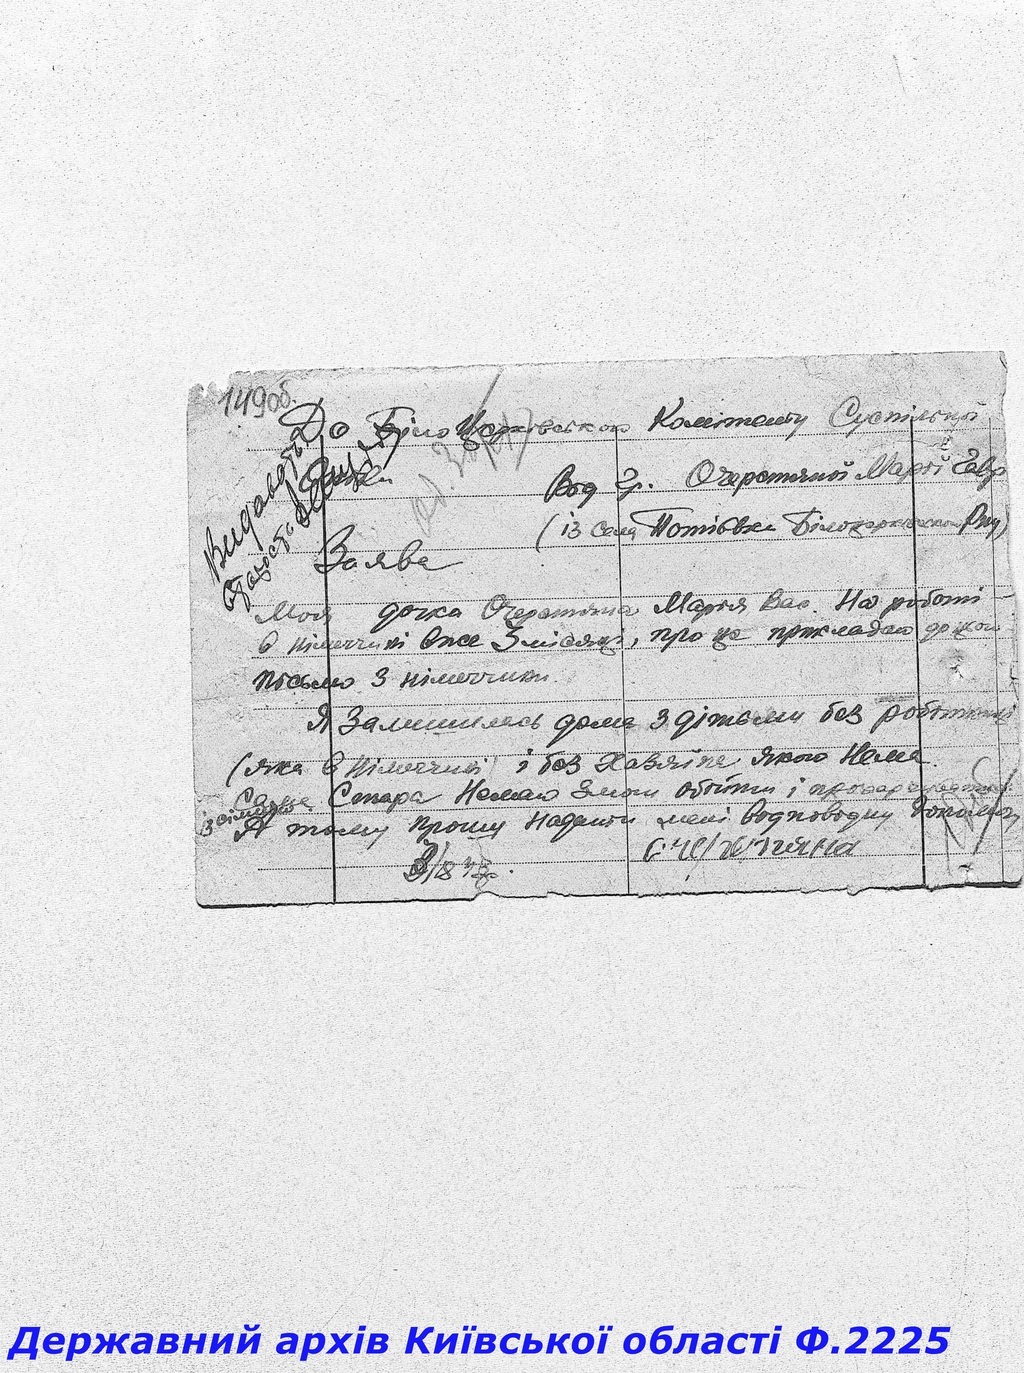 149 об.
До Біло Церківського Комітету Суспільної
Од Гр. Очеретяной Марії Гавр
(із села Потіївка Білоцерківського Р-ну)
Заява
Моя дочка Очеретяна Марія Вас. На роботі
в німеччині вже 3 місяці, про що прикладаю до цього
письмо з німеччини.
Я Залишилась дома з дітьми без робітниці
(яка в Німеччині) і без Хазяїна якого Нема.
Сама Стара Немаю Змоги обійти і
А тому прошу Надати мені водповодну допомогу
Очеретяна
Державний архів Київської області Ф.2225